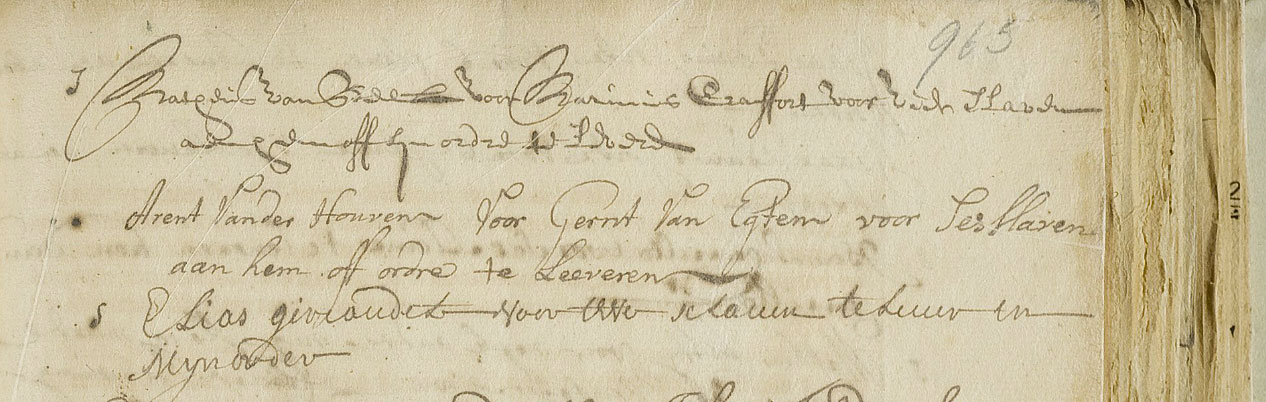 965
van voor Marinus Craffort voor vier slaven
aen hem off sijn ordre te
Arent Vander Houven Voor Gerrit Van Egtem voor Ses slaven
aan hem off ordre te Leeveren
Elias giraudet voor twe slauen te Leuer en
Mijn order